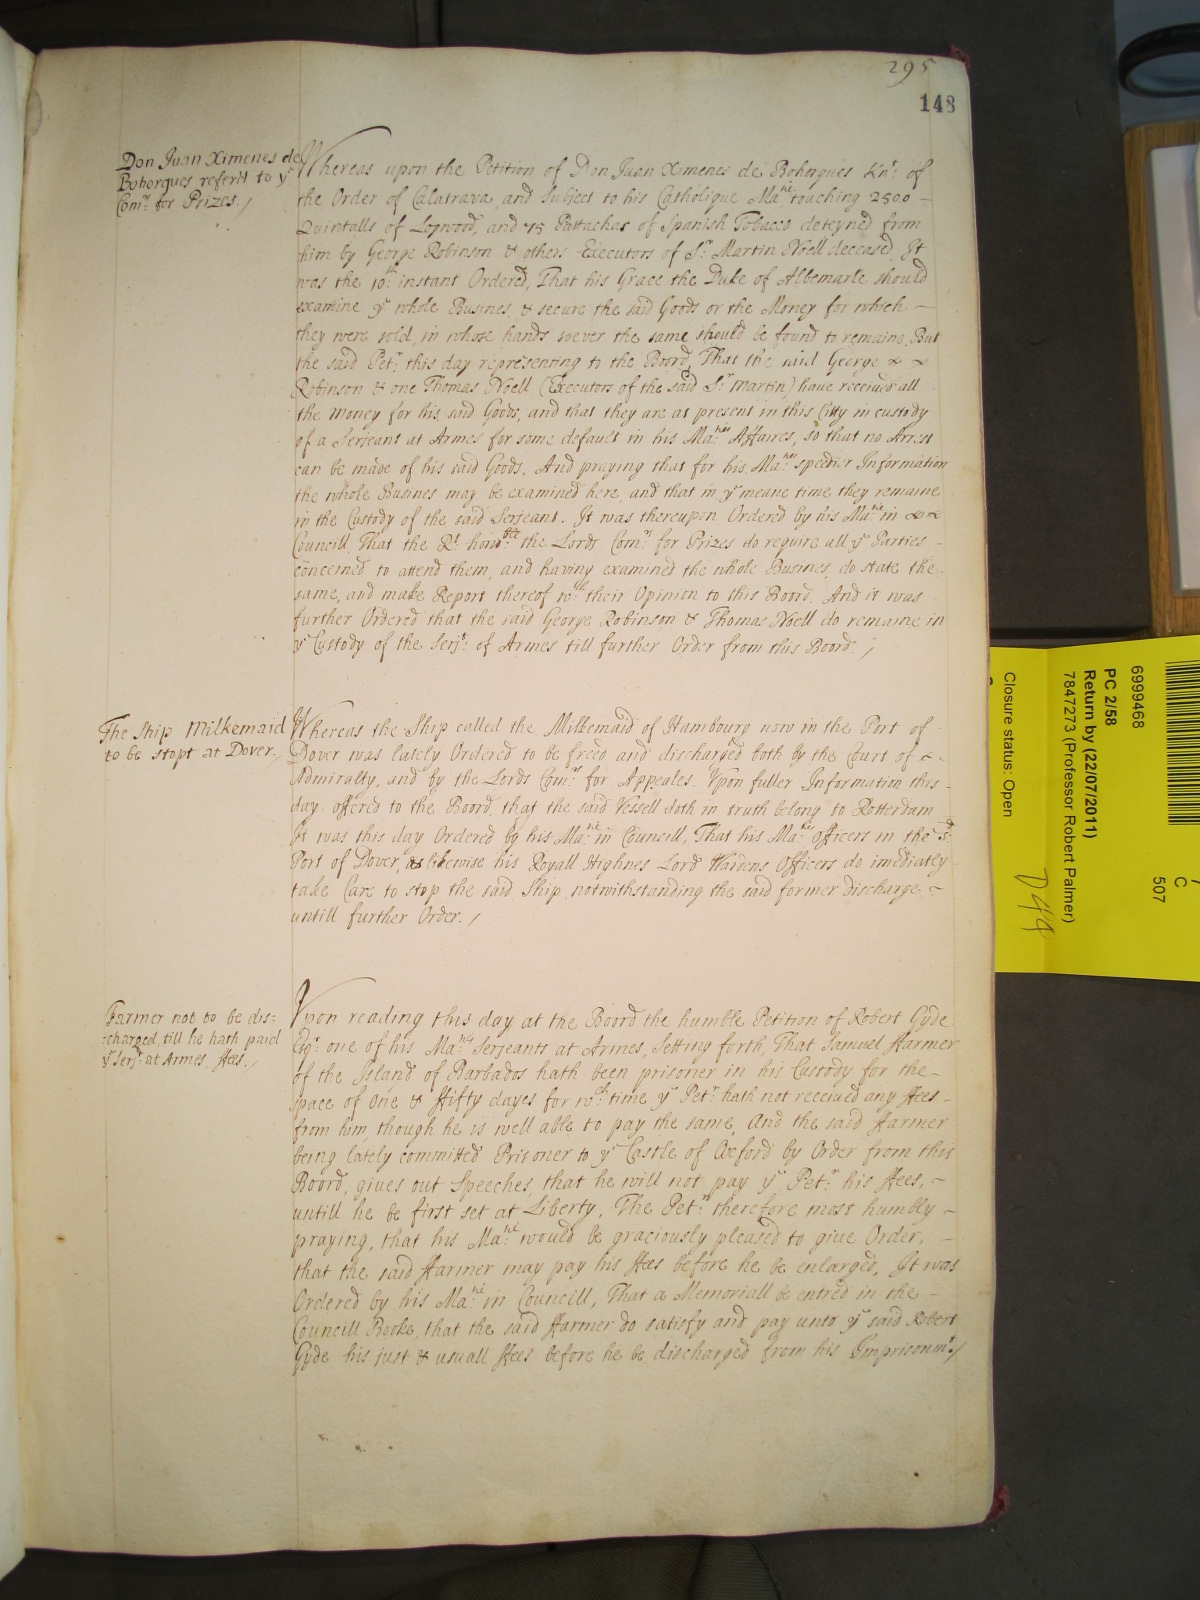 295
148
Don Juan Ximenes de
Bohorques referr'd to yᵉ
Comʳˢ for Prizes./
Whereas upon the Petition of Don Juan Ximenes de Bohorques Knᵗ. of
the Order of Calatrava, and Subject to his Catholique Maᵗⁱᵉ touching 2500 –
Quintalls of Logwood, and 75 Pattachas of Spanish Tobacco deteyned from
him by George Robinson & others Executors of Sʳ Martin Noell deceased, It
was the 10ᵗʰ instant Ordered, That his Grace the Duke of Albemarle should
examine yᵉ whole Busines, & secure the said Goods or the Money for which –
they were sold, in whose hands soever the same should be found to remaine, But
the said Petʳ. this day representing to the Board, That the said George
Robinson & one Thomas Noell (Executors of the said Sʳ Martin) have received all
the Money for his said Goods, and that they are at present in this Citty in custody
of a Serjeant at Armes for some default in his Maᵗⁱᵉˢ Affaires, so that no Arrest
can be made of his said Goods, And praying that for his Maᵗⁱᵉˢ speedier Information
the whole Busines may be examined here, and that in yᵉ meane time they remaine
in the Custody of the said Serjeant. It was thereupon Ordered by his Maᵗⁱᵉ in
Councill, That the Rᵗ honoᵇˡᵉ the Lords Comʳˢ for Prizes do require all yᵉ Parties –
concerned to attend them, and having examined the whole Busines, do state the –
same, and make Report thereof wᵗʰ their Opinion to this Board. And it was
further Ordered that the said George Robinson & Thomas Noell do remaine in
yᵉ Custody of the Serjᵗ. of Armes till further Order from this Board. /
The Ship Milkemaid
to be stopt at Dover./
Whereas the Ship called the Milkemaid of Hambourg now in the Port of
Dover was lately Ordered to be freed and discharged both by the Court of
Admiralty, and by the Lords Comʳˢ for Appeales. Upon fuller Information this –
day offered to the Board, that the said Vessell doth in truth belong to Rotterdam
It was this day Ordered by his Maᵗⁱᵉ in Councill, That his Maᵗⁱᵉˢ Officers in the sᵈ
Port of Dover, as likewise his Royall Highnes Lord Wardens Officers do imediatly
take Care to stop the said Ship, notwithstanding the said former discharge
untill further Order. /
Farmer not to be dis:
:charged, till he hath paid
yᵉ Serjᵗ at Armes, ffees./
Upon reading this day at the Board the humble Petition of Robert Gyde
Esqʳ. one of his Maᵗⁱᵉˢ Serjeants at Armes, Setting forth, That Samuel ffarmer
of the Island of Barbados hath been prisoner in his Custody for the –
space of One & ffifty dayes for wᶜʰ time yᵉ Petʳ. hath not received any ffees –
from him, though he is well able to pay the same, And the said ffarmer
being lately committed Prisoner to yᵉ Castle of Oxford by Order from this
Board, gives out Speeches, that he will not pay yᵉ Petʳ. his ffees,
untill he be first set at Liberty. The Petʳ therefore most humbly –
praying, that his Maᵗⁱᵉ would be graciously pleased to give Order, –
that the said ffarmer may pay his ffees before he be enlarged, It was
Ordered by his Maᵗⁱᵉ in Councill, That a Memoriall be entred in the –
Councill Booke, that the said ffarmer do satisfy and pay unto yᵉ said Robert
Gyde his just & usuall ffees before he be discharged from his Imprisonmᵗ./
6999468
PC 2/58
Return by (22/07/2011)
7847273 (Professor Robert Palmer)
Closure status: Open
C
507